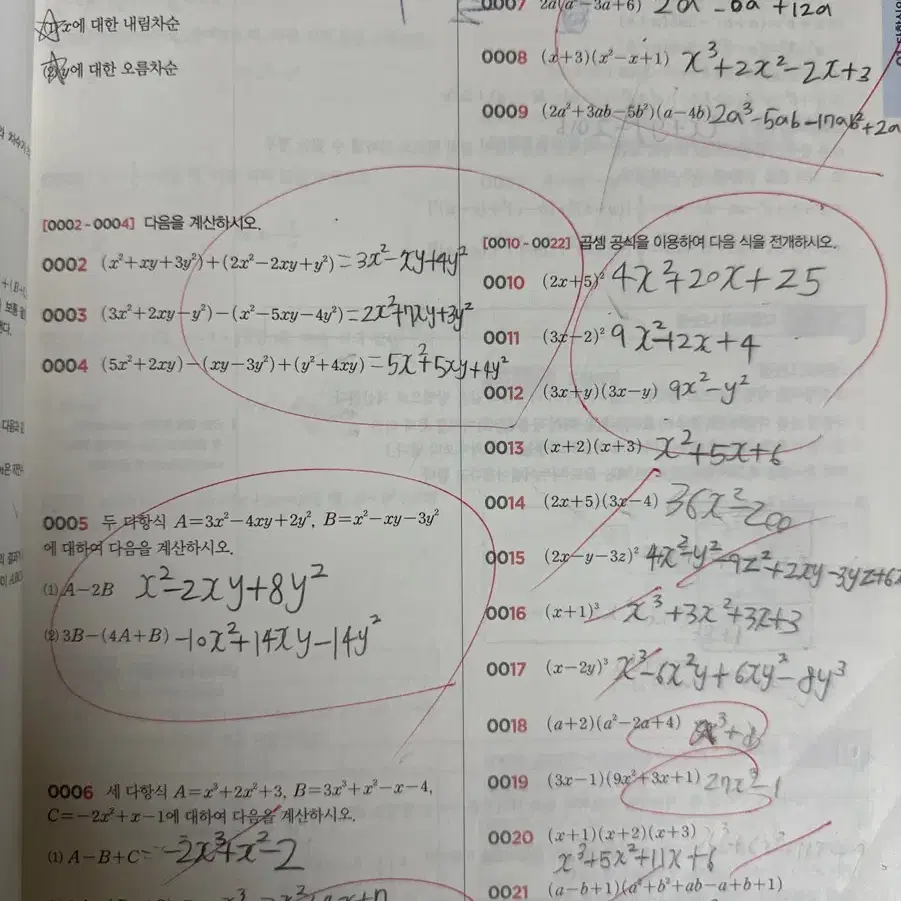 (1) x에 대한 내림차순
(2) y에 대한 오름차순
[0002~0004] 다음을 계산하시오.
0002 (x²+xy+3y²)+(2x²-2xy+y²) =3x²-xy+4y²
0003 (3x²+2xy-y²)-(x²-5xy-4y²) =2x²+7xy+3y²
0004 (5x²+2xy)-(xy-3y²)+(y²+4xy) =5x²+5xy+4y²
0005 두 다항식 A=3x²-4xy+2y², B=x²-xy-3y²
에 대하여 다음을 계산하시오.
(1) A-2B x²-2xy+8y²
(2) 3B-(4A+B) -10x²+14xy-14y²
0006 세 다항식 A=x³+2x²+3, B=3x³+x²-x-4,
C=-2x²+x-1에 대하여 다음을 계산하시오.
(1) A-B+C= -2x³+x²-2
0007 2a(a²-3a+6) 2a -6a +12a
0008 (x+3)(x²-x+1) x³+2x²-2x+3
0009 (2a²+3ab-5b²)(a-4b) 2a³-5ab-17ab²+2a
[0010~0022] 곱셈 공식을 이용하여 다음 식을 전개하시오.
0010 (2x+5)² 4x²+20x+25
0011 (3x-2)² 9x²-12x+4
0012 (3x+y)(3x-y) 9x²-y²
0013 (x+2)(x+3) x²+5x+6
0014 (2x+5)(3x-4) 36x²-200
0015 (2x-y-3z)² 4x²-y²-9z²+2xy-3yz+6x
0016 (x+1)³ x³+3x²+3x+3
0017 (x-2y)³ x³-6x²y+6xy²-8y³
0018 (a+2)(a²-2a+4) x³+8
0019 (3x-1)(9x²+3x+1) 27x³-1
0020 (x+1)(x+2)(x+3)
x³+5x²+11x+6
0021 (a-b+1)(a²+b²+ab-a+b+1)